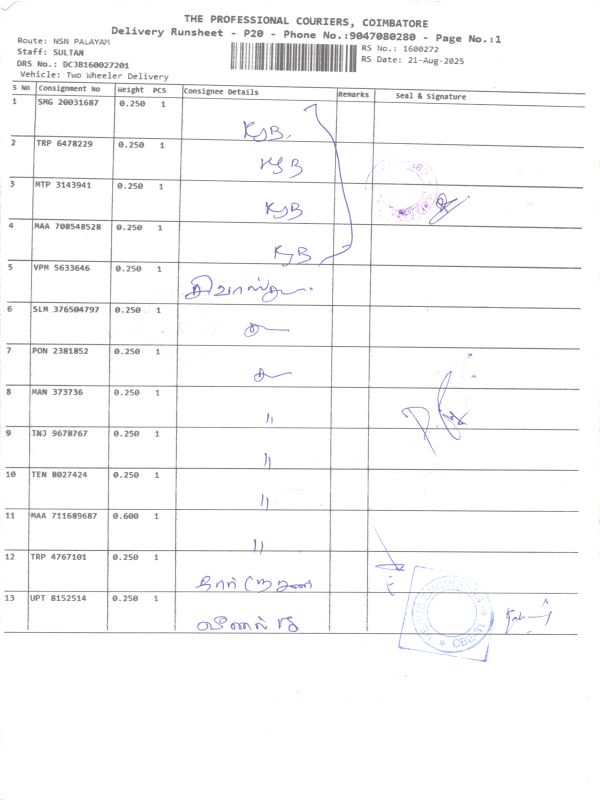 THE PROFESSIONAL COURIERS, COIMBATORE
Delivery Runsheet - P20 - Phone No.:9047080280 - Page No.:1
Route: NSN PALAYAM
Staff: SULTAN
DRS No.: DCJB160027201
Vehicle: Two Wheeler Delivery
RS No.: 1600272
RS Date: 21-Aug-2025
S No Consignment No Weight PCS Consignee Details Remarks Seal & Signature
1 SMG 20031687 0.250 1 KJB.
2 TRP 6478229 0.250 1 KJB
3 MTP 3143941 0.250 1 KJB
4 MAA 708548528 0.250 1 KJB
5 VPM 5633646 0.250 1
6 SLM 376504797 0.250 1
7 PON 2381852 0.250 1
8 MAN 373736 0.250 1 "
9 TNJ 9678767 0.250 1 "
10 TEN 8027424 0.250 1 "
11 MAA 711689687 0.600 1 "
12 TRP 4767101 0.250 1
13 UPT 8152514 0.250 1